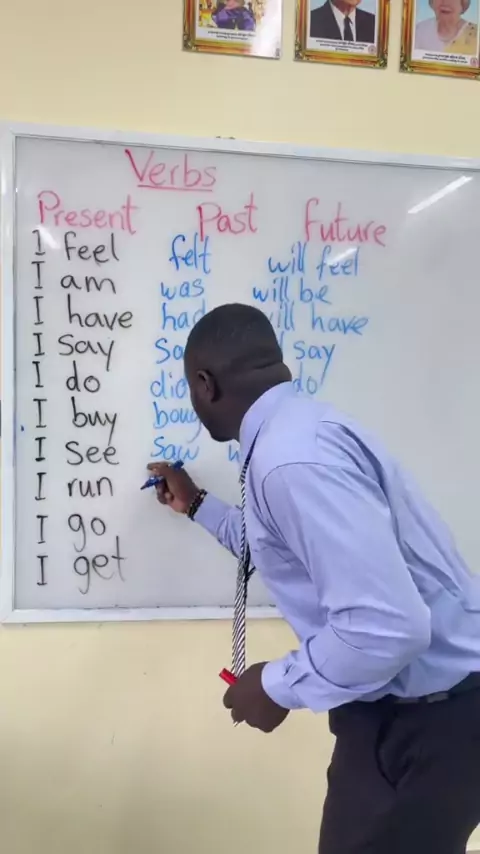 Verbs
Present Past Future
I feel felt will feel
I am was will be
I have had will have
I say say
I do do
I buy
I see saw
I run
I go
I get